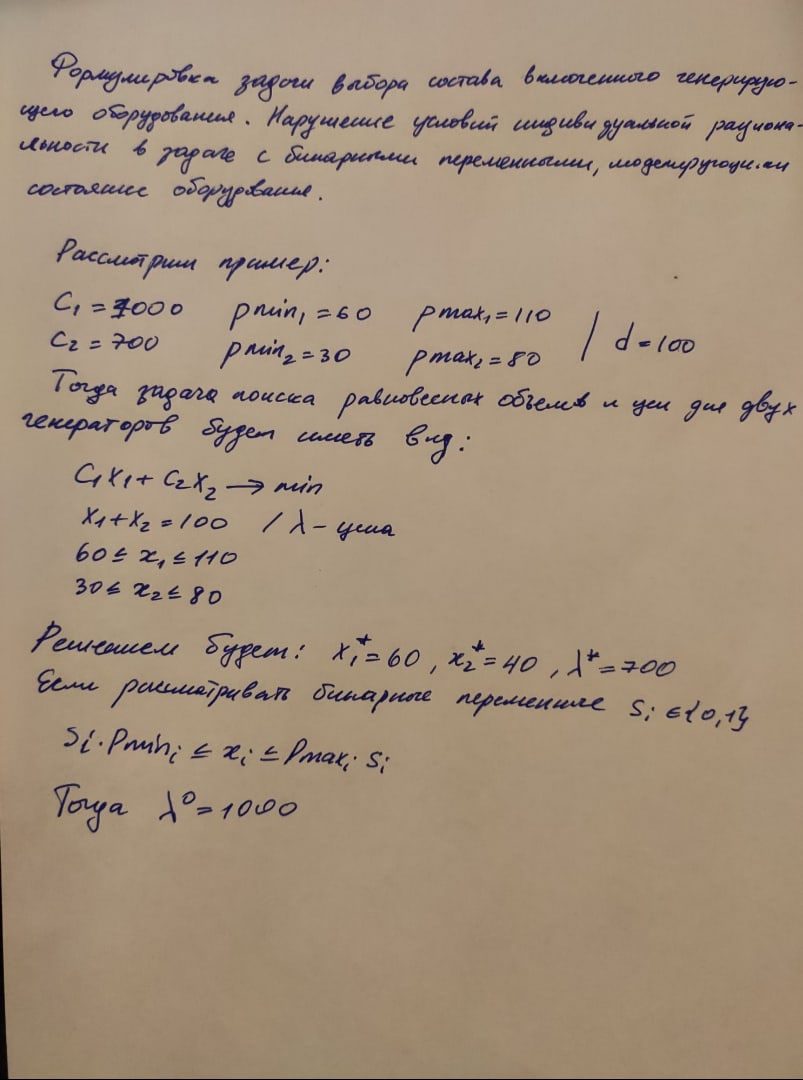 Формулировка задачи выбора состава включенного генерирую-
щего оборудования. Нарушение условий индивидуальной рациона-
льности в задаче с бинарными переменными, моделирующими
состояние оборудования.
Рассмотрим пример:
C₁ = 1000 pmin₁ = 60 pmax₁ = 110
C₂ = 700 pmin₂ = 30 pmax₂ = 80 / d = 100
Тогда задача поиска равновесных объемов и цен для двух
генераторов будет иметь вид:
C₁x₁ + C₂x₂ → min
x₁ + x₂ = 100 / λ – цена
60 ≤ x₁ ≤ 110
30 ≤ x₂ ≤ 80
Решением будет: x₁* = 60, x₂* = 40, λ* = 700
Если рассматривать бинарные переменные Sᵢ ∈ {0,1}
Sᵢ · Pminᵢ ≤ xᵢ ≤ Pmaxᵢ Sᵢ
Тогда λ⁰ = 1000